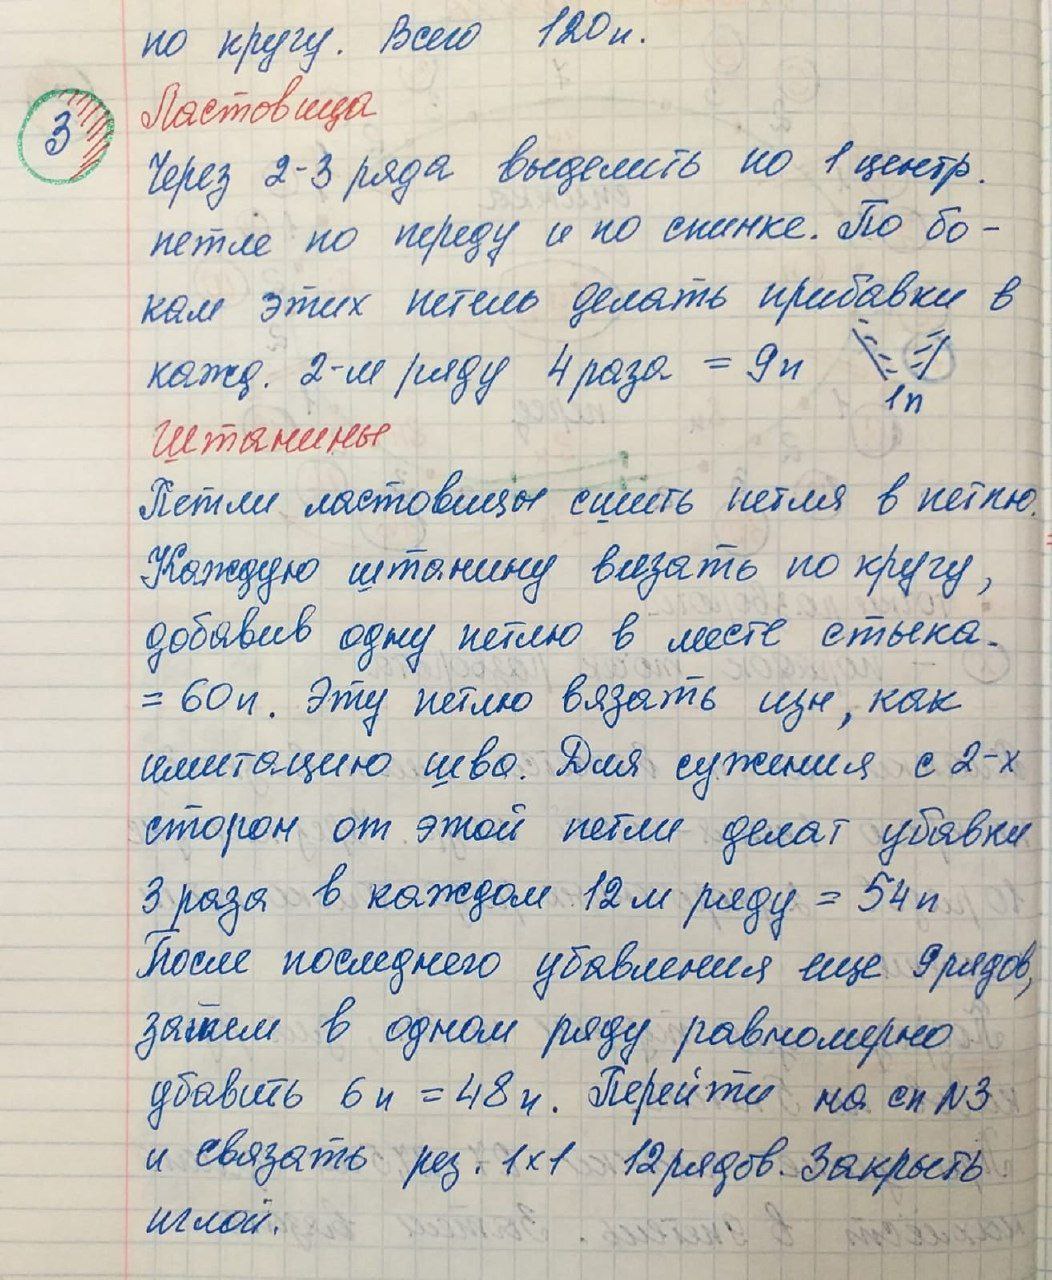 по кругу. Всего 120п.
3
Ластовица
Через 2-3 ряда выделить по 1 центр.
петле по переду и по спинке. По бо-
кам этих петель делать прибавки в
кажд. 2-м ряду 4 раза = 9п
1п
Штанины
Петли ластовицы сшить петля в петлю.
Каждую штанину вязать по кругу,
добавив одну петлю в месте стыка.
= 60п. Эту петлю вязать изн, как
имитацию шва. Для сужения с 2-х
сторон от этой петли делат убавки
3 раза в каждом 12м ряду = 54п
После последнего убавления еще 9 рядов,
затем в одном ряду равномерно
убавить 6п = 48п. Перейти на сп N3
и связать рез. 1х1 12 рядов. Закрыть
иглой.